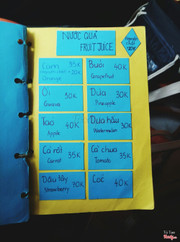 NƯỚC QUẢ
FRUIT JUICE
Cam 35K
Orange
Bưởi 40K
Grapefruit
Ổi 30K
Guava
Dứa 30K
Pineapple
Táo 40K
Apple
Dưa hấu 30K
Watermelon
Cà rốt 35K
Carrot
Cà chua 35K
Tomato
Dâu tây 40K
Strawberry
Cóc 40K